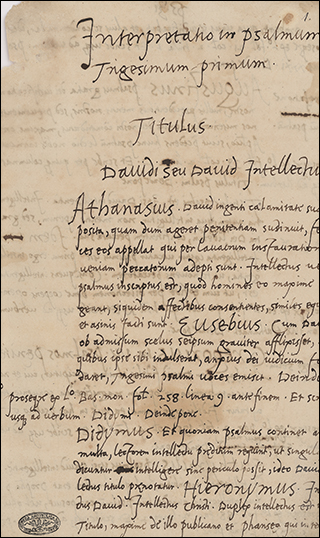 1.
Interpretatio in psalmum
Trigesimum primum.
Titulus
Dauidi seu Dauid Intellectu
Athanasius. Dauid ingenti calamitate su
posita, quam dum ageret penitentiam sustinuit, fe
ces eos appellat qui per lauacrum instauration
ueniam peccatorum adepti sunt. Intellectus u
psalmus inscriptus est, quod homines eo maxime
geant, siquidem affectibus consentientes, similes equ
et asinis facti sunt. Eusebius. Cum Da
ob admissum scelus seipsum grauiter afflixisset,
quibus ipse sibi indulserat, anxius dei iudicium
daret, trigesimi psalmi uoces emisit. Deinde
et Bas. non fol. 258. linea 9. ante finem. Et sic
usq ad uerbum. Did. Deinde pone.
Didymus. Et quoniam psalmus continet a
multa, lectorem intellectu preditum ut singul
dicuntur intelligere sine periculo possit, ideo Daui
lectus titulo prenotatur. Hieronymus. In
Dauid. Intellectus Christi. Duplex intellectus est
Titulo, maxime de illo publicano et phariseo qui in te